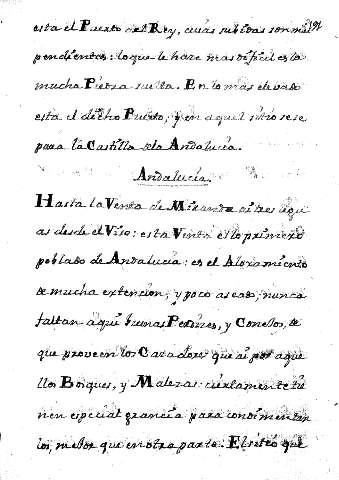 191
esta el Puerto del Rey, cuias subidas son mui
pendientes: lo que le hace mas dificil es la
mucha Piedra suelta. En lo mas elevado
esta el dicho Puerto, y en aquel sitio se se
para la Castilla de la Andalucia.
Andalucia.
Hasta la Venta de Miranda ai tres legu
as desde el Viso: esta Venta es lo primero
poblado de Andalucia: es el Aloxamiento
de mucha extencion, y poco aseado; nunca
faltan aqui buenas Perdizes, y Conejos, de
que proveen los Cazadores que ai por aque
llos Bosques, y Malezas: ciertamente tie
nen especial gracia para condimentar
los, mejor que en otra parte. El sitio que